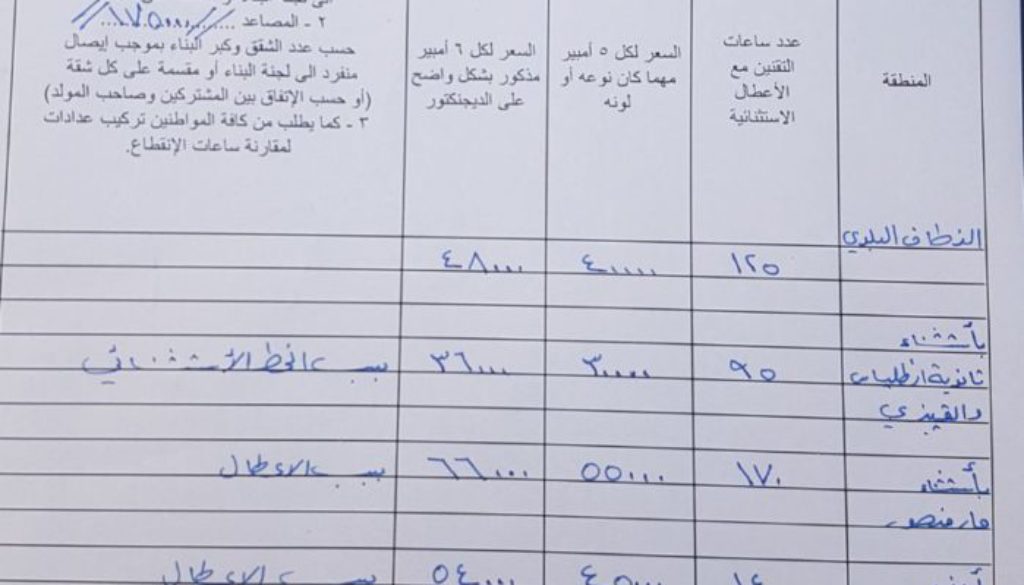 ٢ - المصاعد ........١٧.٥٠٠٠....
حسب عدد الشقق وكبر البناء بموجب إيصال
منفرد الى لجنة البناء أو مقسمة على كل شقة
(أو حسب الإتفاق بين المشتركين وصاحب المولد)
٣ - كما يطلب من كافة المواطنين تركيب عدادات
لمقارنة ساعات الإنقطاع.
المنطقة
عدد ساعات
التقنين مع
الأعطال
الاستثنائية
السعر لكل ٥ أمبير
مهما كان نوعه أو
لونه
السعر لكل ٦ أمبير
مذكور بشكل واضح
على الديجنكتور
النطاق البلدي
١٢٥ ٤٠٠٠٠ ٤٨٠٠٠
بأستثناء
ثانوية انطلياس ٩٥ ٣٠٠٠٠ ٣٦٠٠٠ بسبب الخط الأستثنائي
بأستثناء ١٧٠ ٥٥٠٠٠ ٦٦٠٠٠ بسبب الاعطال
مار منصور
٥٤٠٠٠ بسبب الاعطال